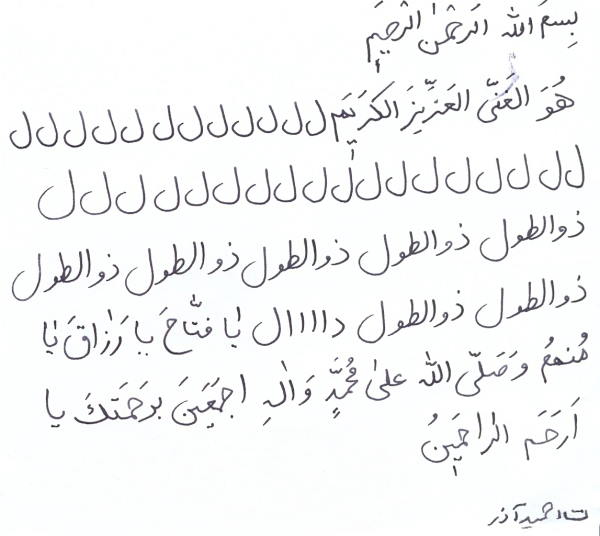 بِسمَ الله الرَحمٰن الرحیَم
هُوَ الغَنّی العَزّیزَ الکرَیَم ل ل ل ل ل ل ل ل ل ل ل
ل ل ل ل ل ل ل ل ل ل ل ل ل ل ل ل ل
ذوالطول ذوالطول ذوالطول ذوالطول ذوالطول
ذوالطول ذوالطول د ا ا ا ا ل یا فتّاحَ یا رَزاقَ یا
مُنعمُ وَصَلّی الله علیٰ مُحمَّدٍ وَالِهِ اجمَعَینَ برحَمَتکَ یا
اَرَحَم الراحمَینُ
حمید آذر